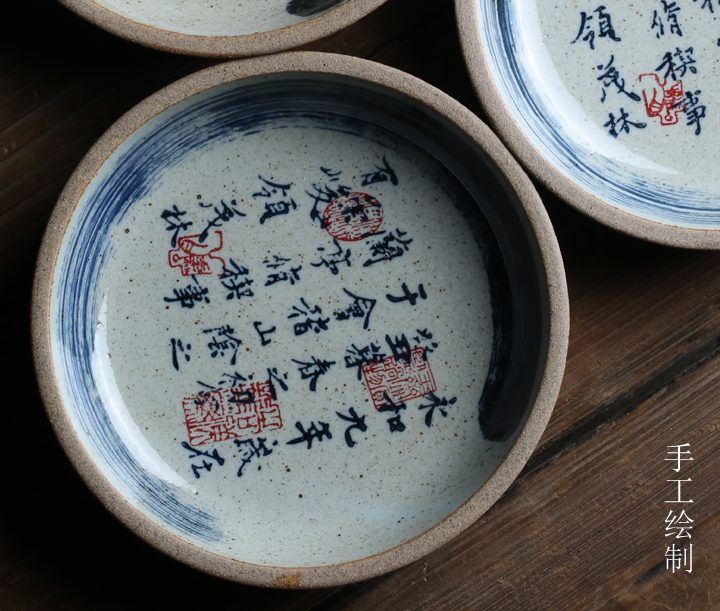 永和九年歲在
癸丑暮春之初
于會稽山陰之
蘭亭脩禊事
有峻領茂林
脩禊事
領茂林
手工绘制